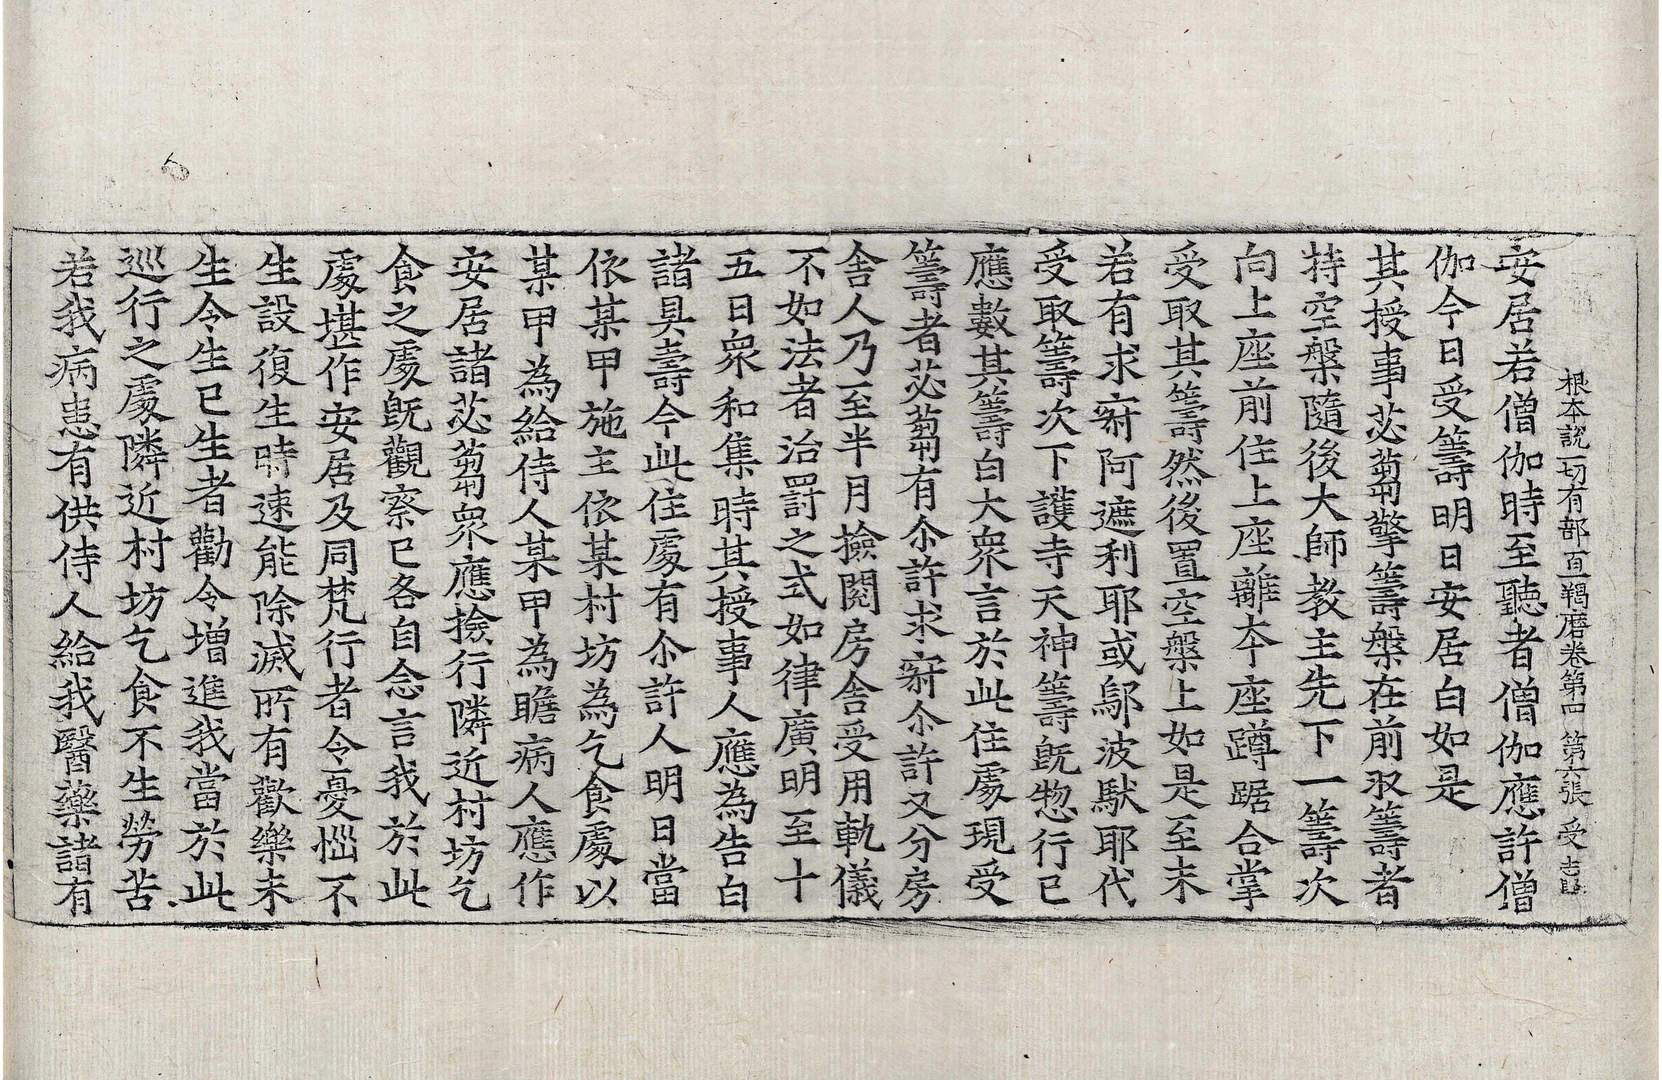 根本說一切有部百一羯磨卷第四 第六張 受
安居若僧伽時至聽者僧伽應許僧
伽今日受籌明日安居白如是
其授事苾蒭擎籌槃在前収籌者
持空槃隨後大師教主先下一籌次
向上座前住上座離夲座蹲踞合掌
受取其籌然後置空槃上如是至末
若有求㝷阿遮利耶或鄔波馱耶代
受取籌次下護寺天神籌旣惣行已
應數其籌白大衆言於此住處現受
籌者苾蒭有尒許求㝷尒許又分房
舍人乃至半月撿閱房舍受用軌儀
不如法者治罸之式如律廣明至十
五日衆和集時其授事人應為告白
諸具壽今此住處有尒許人明日當
依某甲施主依某村坊為乞食處以
某甲為給侍人某甲為瞻病人應作
安居諸苾蒭衆應撿行隣近村坊乞
食之處旣觀察已各自念言我於此
處堪作安居及同梵行者令憂惱不
生設復生時速能除滅所有歡樂未
生令生已生者勸令增進我當於此
巡行之處隣近村坊乞食不生勞苦
若我病患有供侍人給我醫藥諸有